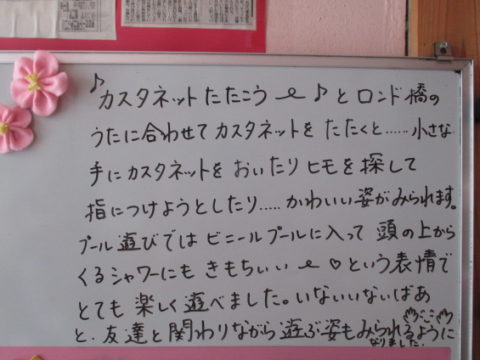 ♪カスタネットたたこう〜♪とロンド橋の
うたに合わせてカスタネットをたたくと……小さな
手にカスタネットをおいたりヒモを探して
指につけようとしたり…..かわいい姿がみられます。
プール遊びではビニールプールに入って頭の上から
くるシャワーにもきもちぃぃ〜♡という表情で
とても楽しく遊べました。いないいないばあ
と、友達と関わりながら遊ぶ姿もみられるように
なりました。